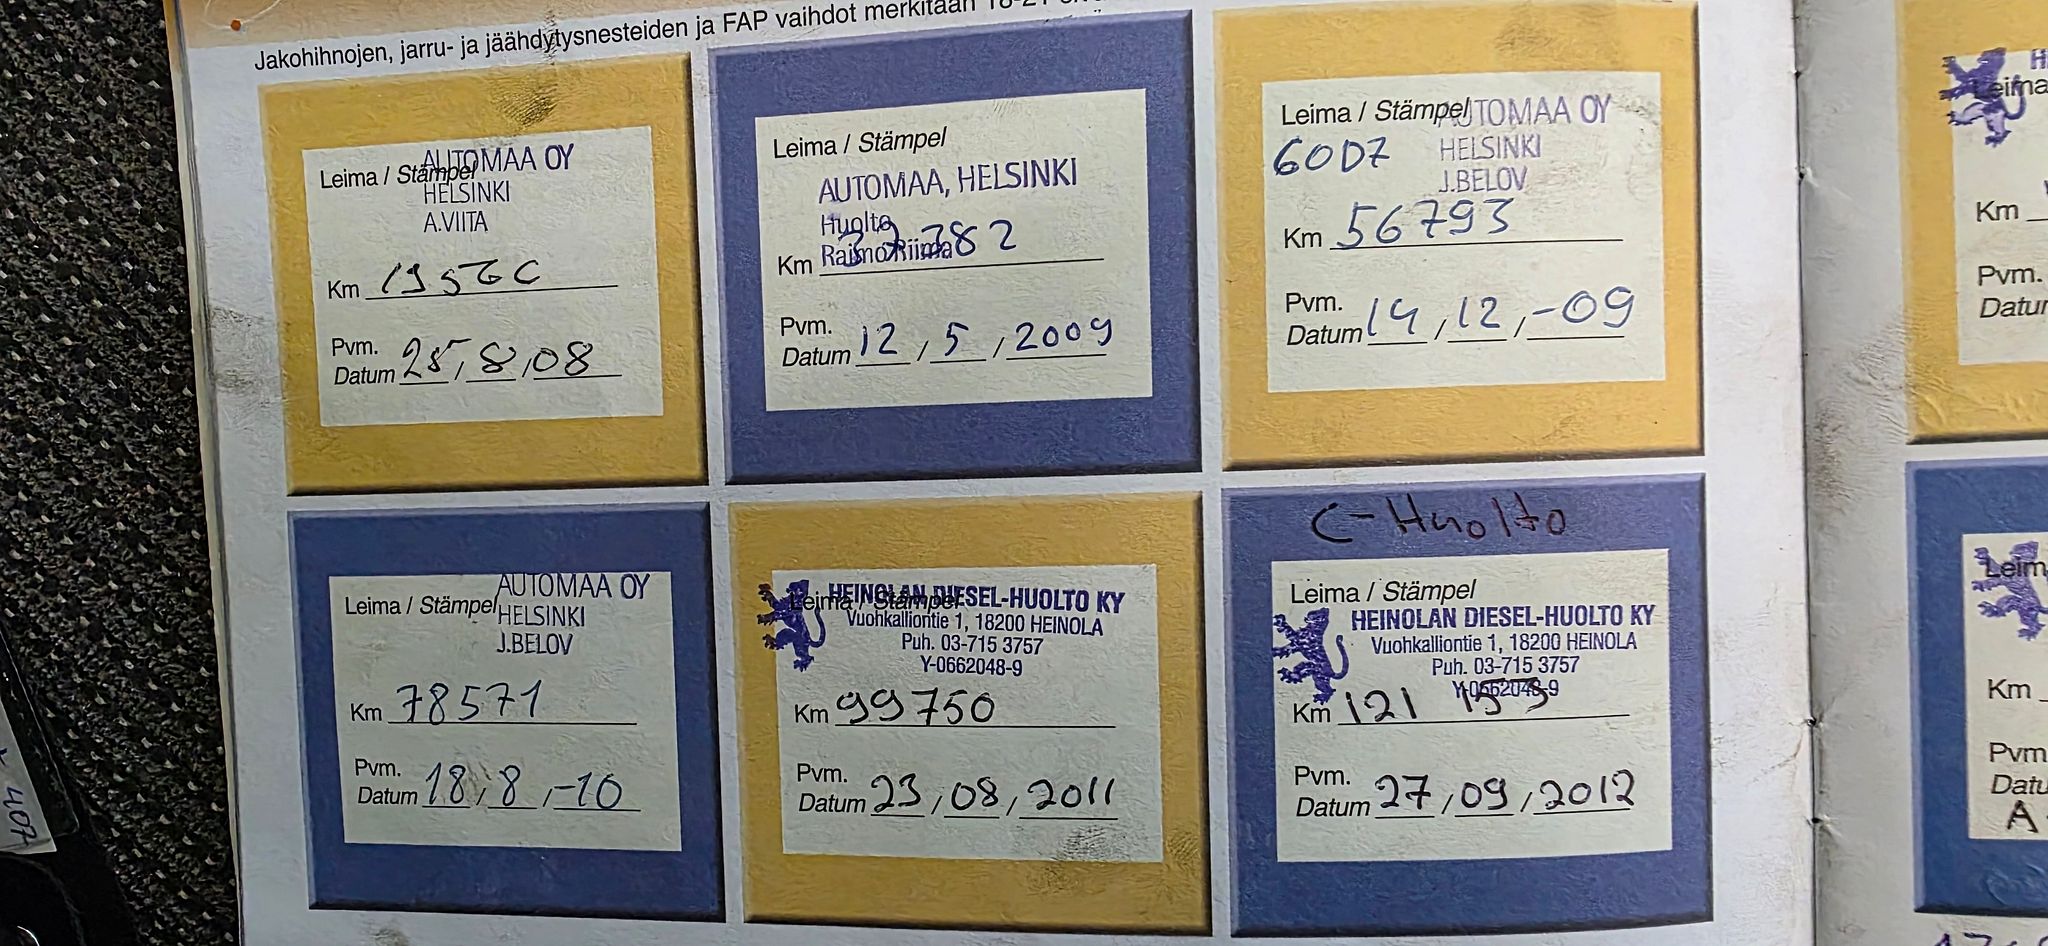 Jakohihnojen, jarru- ja jäähdytysnesteiden ja FAP vaihdot merkitään
Leima / Stämpel
AUTOMAA OY
HELSINKI
A.VIITA
Km
Pvm.
Datum 25,8,08
Leima / Stämpel
AUTOMAA, HELSINKI
Huolto
Raimo Riima
Km 37382
Pvm.
Datum 12 / 5 / 2009
Leima / Stämpel
AUTOMAA OY
60D7
HELSINKI
J.BELOV
Km 56793
Pvm.
Datum 14 / 12 / -09
Leima / Stämpel
AUTOMAA OY
HELSINKI
J.BELOV
Km 78571
Pvm.
Datum 18 / 8 / -10
Leima / Stämpel
HEINOLAN DIESEL-HUOLTO KY
Vuohkalliontie 1, 18200 HEINOLA
Puh. 03-715 3757
Y-0662048-9
Km 99750
Pvm.
Datum 23 / 08 / 2011
C-Huolto
Leima / Stämpel
HEINOLAN DIESEL-HUOLTO KY
Vuohkalliontie 1, 18200 HEINOLA
Puh. 03-715 3757
Y-0662048-9
Km 121 153
Pvm.
Datum 27 / 09 / 2012
Leima
Km
Pvm.
Km
Pvm
A
407